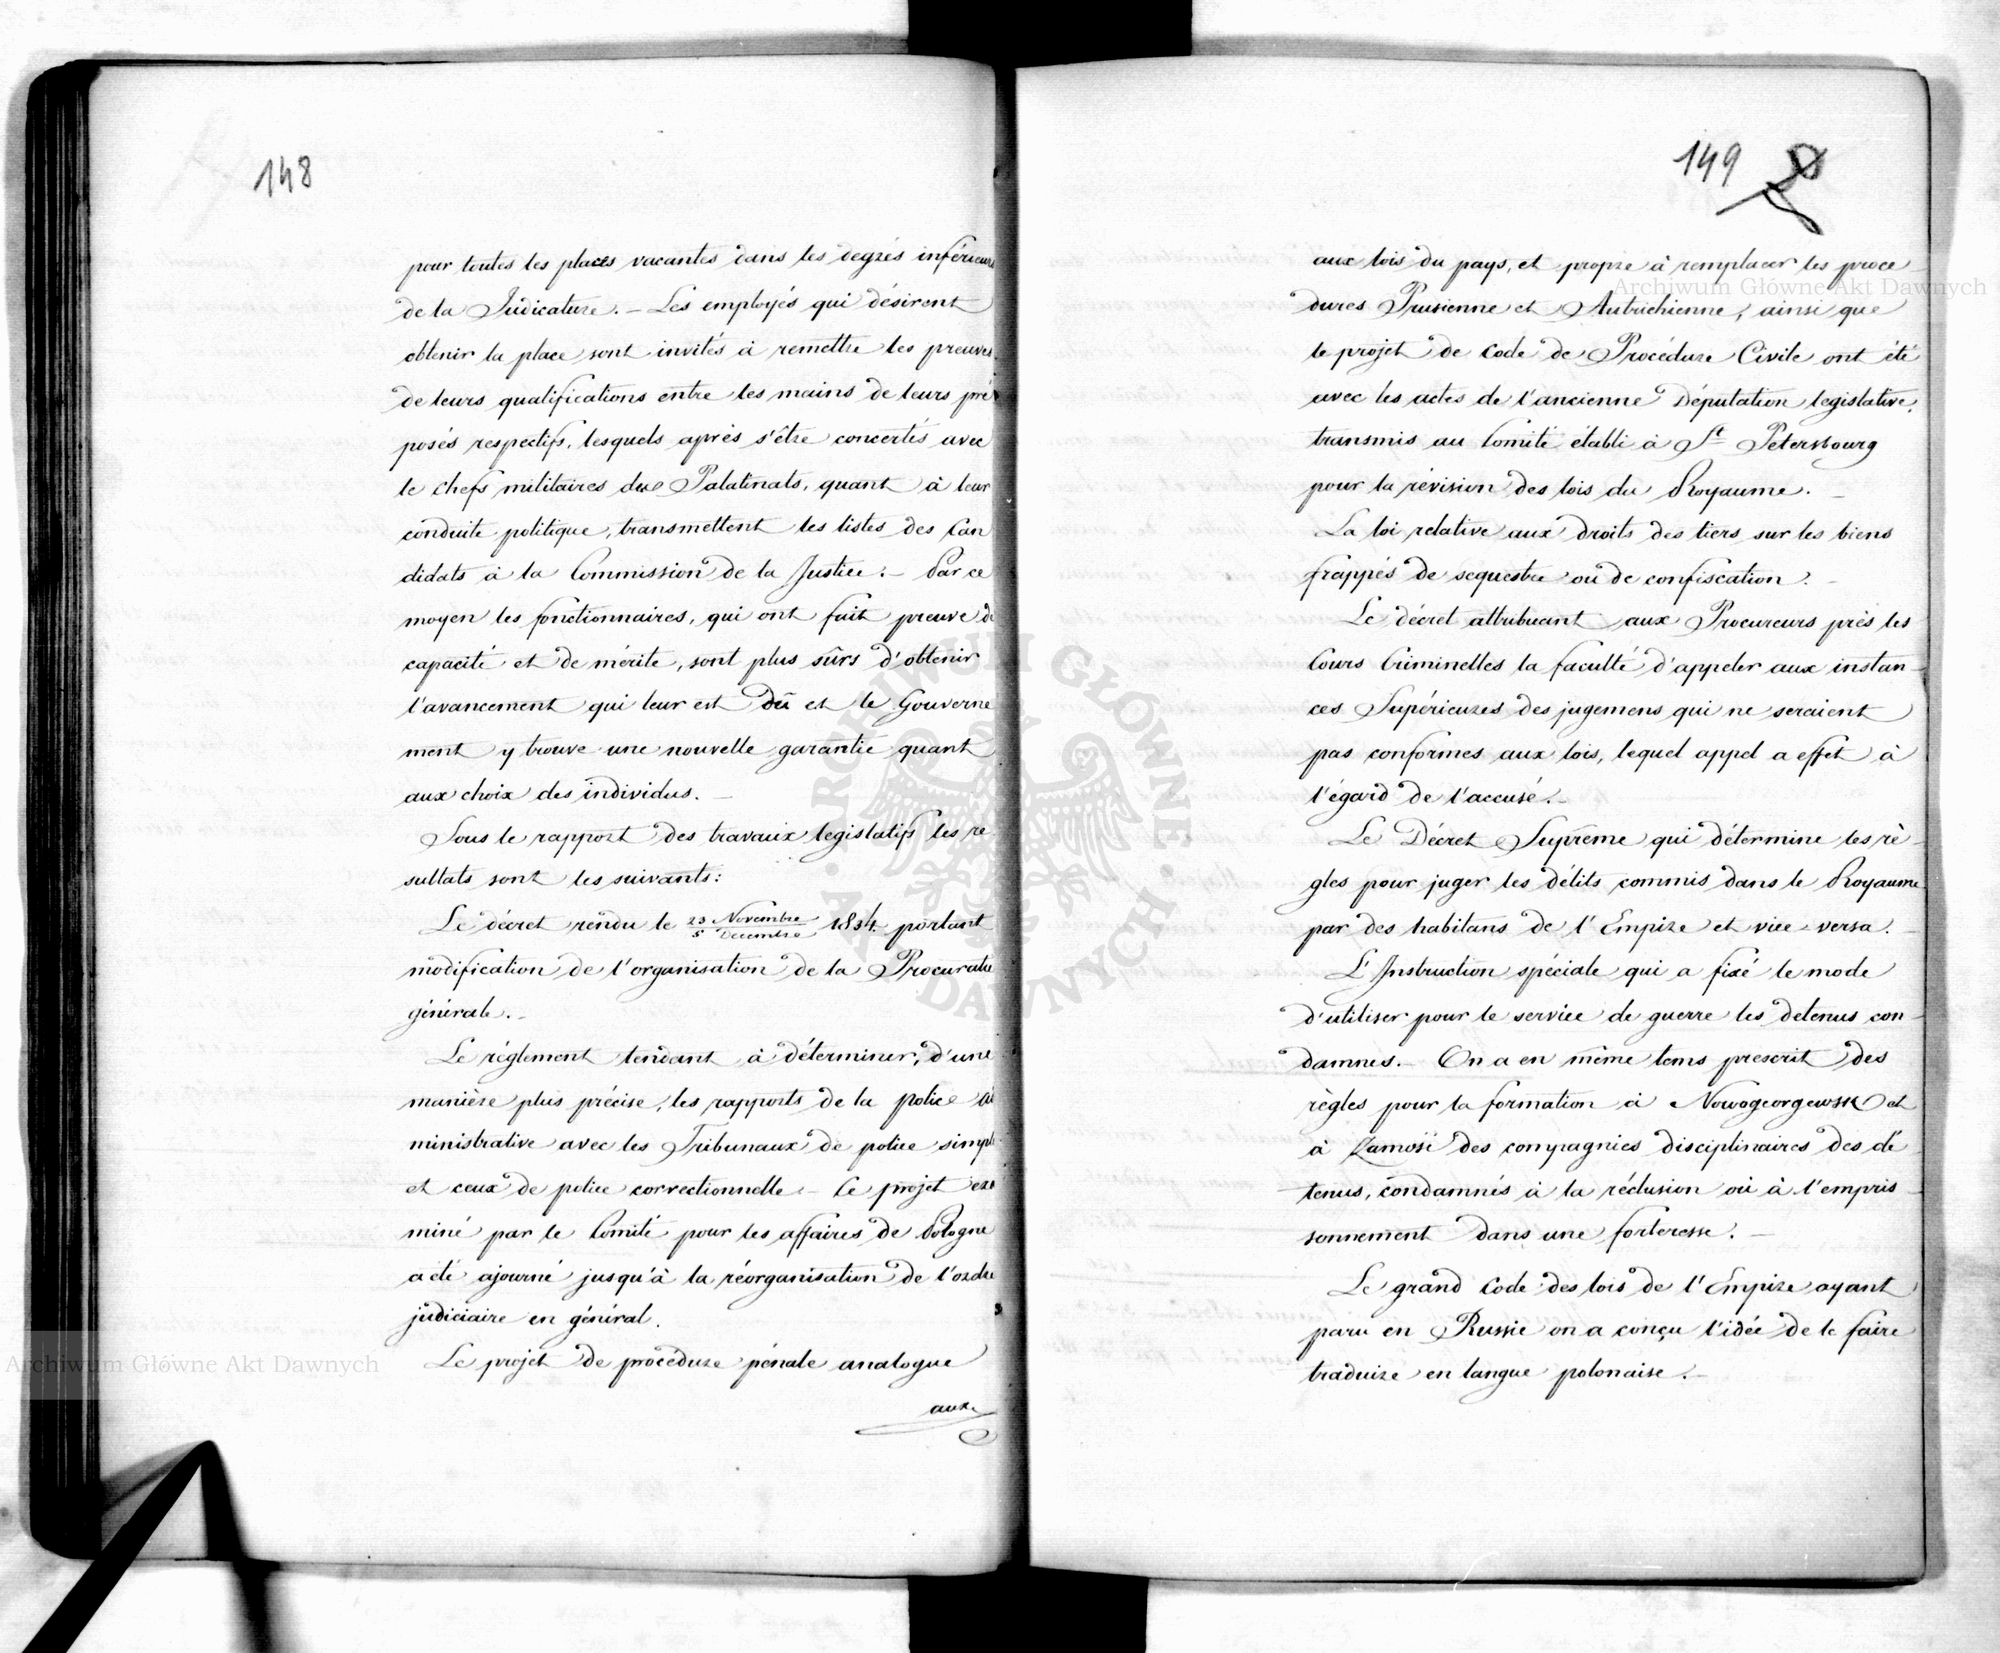 148
pour toutes les places vacantes dans les degrés inférieurs
de la Judicature. – Les employés qui désirent
obtenir la place sont invités à remettre les preuves
de leurs qualifications entre les mains de leurs pré
posés respectifs, lesquels après s'être concertés avec
le chefs militaires des Palatinats, quant à leur
conduite politique, transmettent les listes des Can
didats à la Commission de la Justice. – Par ce
moyen les fonctionnaires, qui ont fait preuve de
capacité et de mérite, sont plus sûrs d'obtenir
l'avancement qui leur est dû et le Gouverne
ment y trouve une nouvelle garantie quant
aux choix des individus. –
Sous le rapport des travaux legislatifs les re
sultats sont les suivants:
Le décret rendu le 23 Novembre / 5 Decembre 1834. portant
modification de l'organisation de la Procuratie
générale. –
Le règlement tendant à déterminer, d'une
manière plus précise, les rapports de la police ad
ministrative avec les Tribunaux de police simple
et ceux de police correctionnelle – Ce projet exa
miné par le Comité pour les affaires de Pologne
a été ajourné jusqu'à la réorganisation de l'ordre
judiciaire en général.
Le projet de procédure pénale analogue
aux
149
aux lois du pays, et propre à remplacer les procé
dures Prusienne et Autrichienne, ainsi que
le projet de Code de Procédure Civile ont été
avec les actes de l'ancienne Députation legislative,
transmis au Comité établi à St Petersbourg
pour la révision des lois du Royaume. –
La loi relative aux droits des tiers sur les biens
frappés de sequestre ou de confiscation. –
Le décret attribuant aux Procureurs près les
Cours Criminelles la faculté d'appeler aux instan
ces Supérieures des jugemens qui ne seraient
pas conformes aux lois, lequel appel a effet à
l'égard de l'accusé. –
Le Décret Suprême qui détermine les rè
gles pour juger les délits commis dans le Royaume
par des habitans de l'Empire et vice-versa. –
L'Instruction spéciale qui a fixé le mode
d'utiliser pour le service de guerre les detenus con
damnes. – On a en même tems prescrit des
règles pour la formation à Nowogeorgewsk et
à Zamość des compagnies disciplinaires des dé
tenus, condamnés à la réclusion où à l'empris
sonnement dans une forteresse. –
Le grand Code des lois de l'Empire ayant
paru en Russie on a conçu l'idée de le faire
traduire en langue polonaise. –
Archiwum Główne Akt Dawnych
Archiwum Główne Akt Dawnych
ARCHIWUM GŁÓWNE AKT DAWNYCH